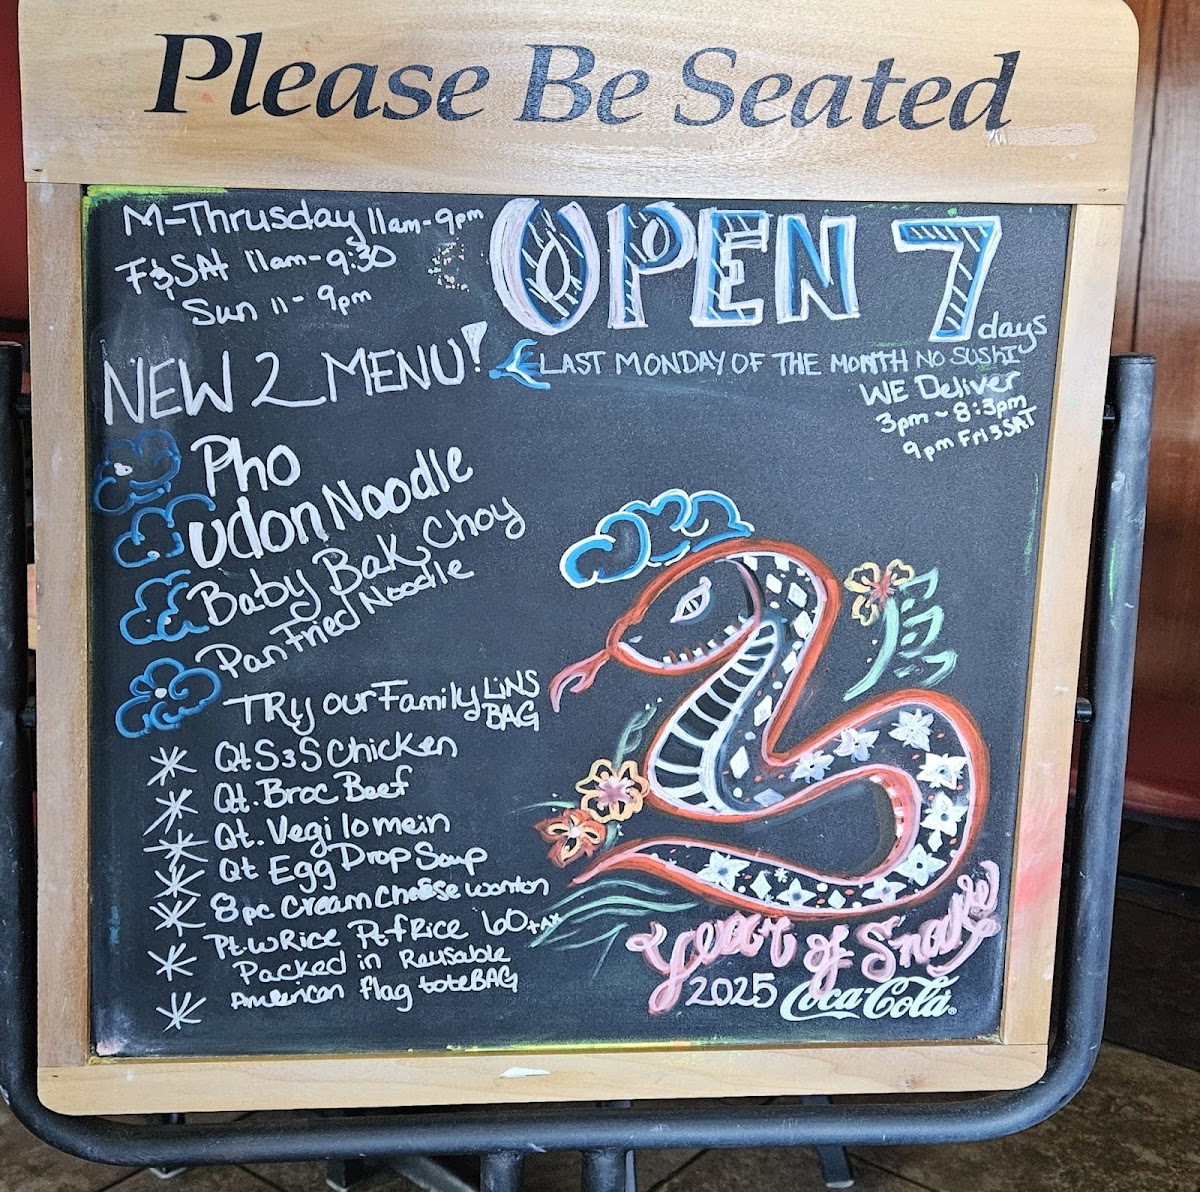 Please Be Seated
M-Thrusday 11am-9pm
F&SAt 11am-9:30
Sun 11-9pm
OPEN 7
days
LAST MONDAY OF THE MONTH NO SUSHI
WE Deliver
3pm-8:3pm
9pm Fri&SAT
NEW 2 MENU!
Pho
udon Noodle
Baby Bak Choy
Pan Fried Noodle
TRy our Family LiNS
BAG
Qt S&S Chicken
Qt. Broc Beef
Qt. Vegi lo mein
Qt Egg Drop Soup
8pc Cream Cheese wonton
Pt.wRice Pt fRice 60+tAx
Packed in Reusable
American flag toteBAG
Year of Snake
2025 Coca-Cola®